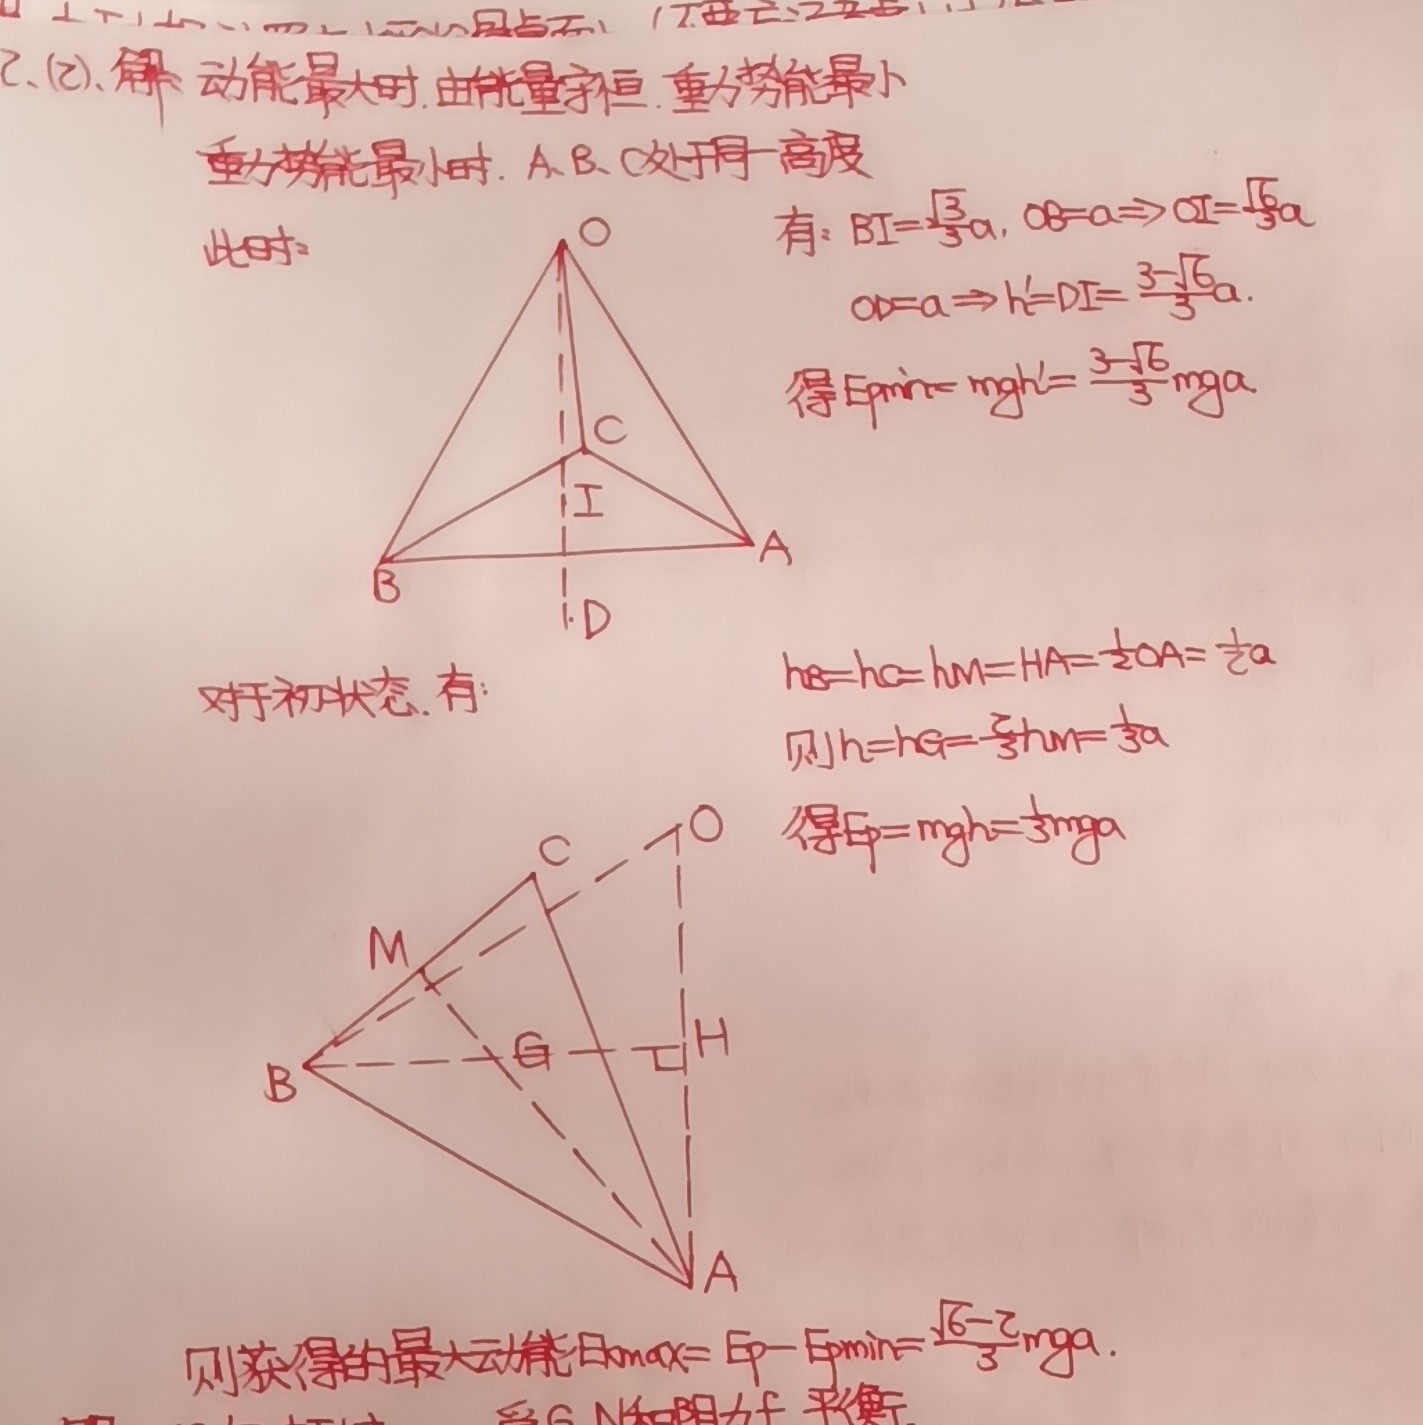 2、(2)、解: 动能最大时.由能量守恒.重力势能最小
重力势能最小时. A、B、C处于同一高度
此时:
O
C
I
B
A
D
有: BI=√3/3a, OB=a⇒OI=√6/3a
OD=a⇒h'=DI=(3-√6)/3a.
得Epmin=mgh'=(3-√6)/3mga.
对于初状态.有:
hB=hC=hM=HA=1/2OA=1/2a
则h=hG=2/3hM=1/3a
得Ep=mgh=1/3mga
O
C
M
G
H
B
A
则获得的最大动能Ekmax=Ep-Epmin=(√6-2)/3mga.
受G、N和阻力f 平衡